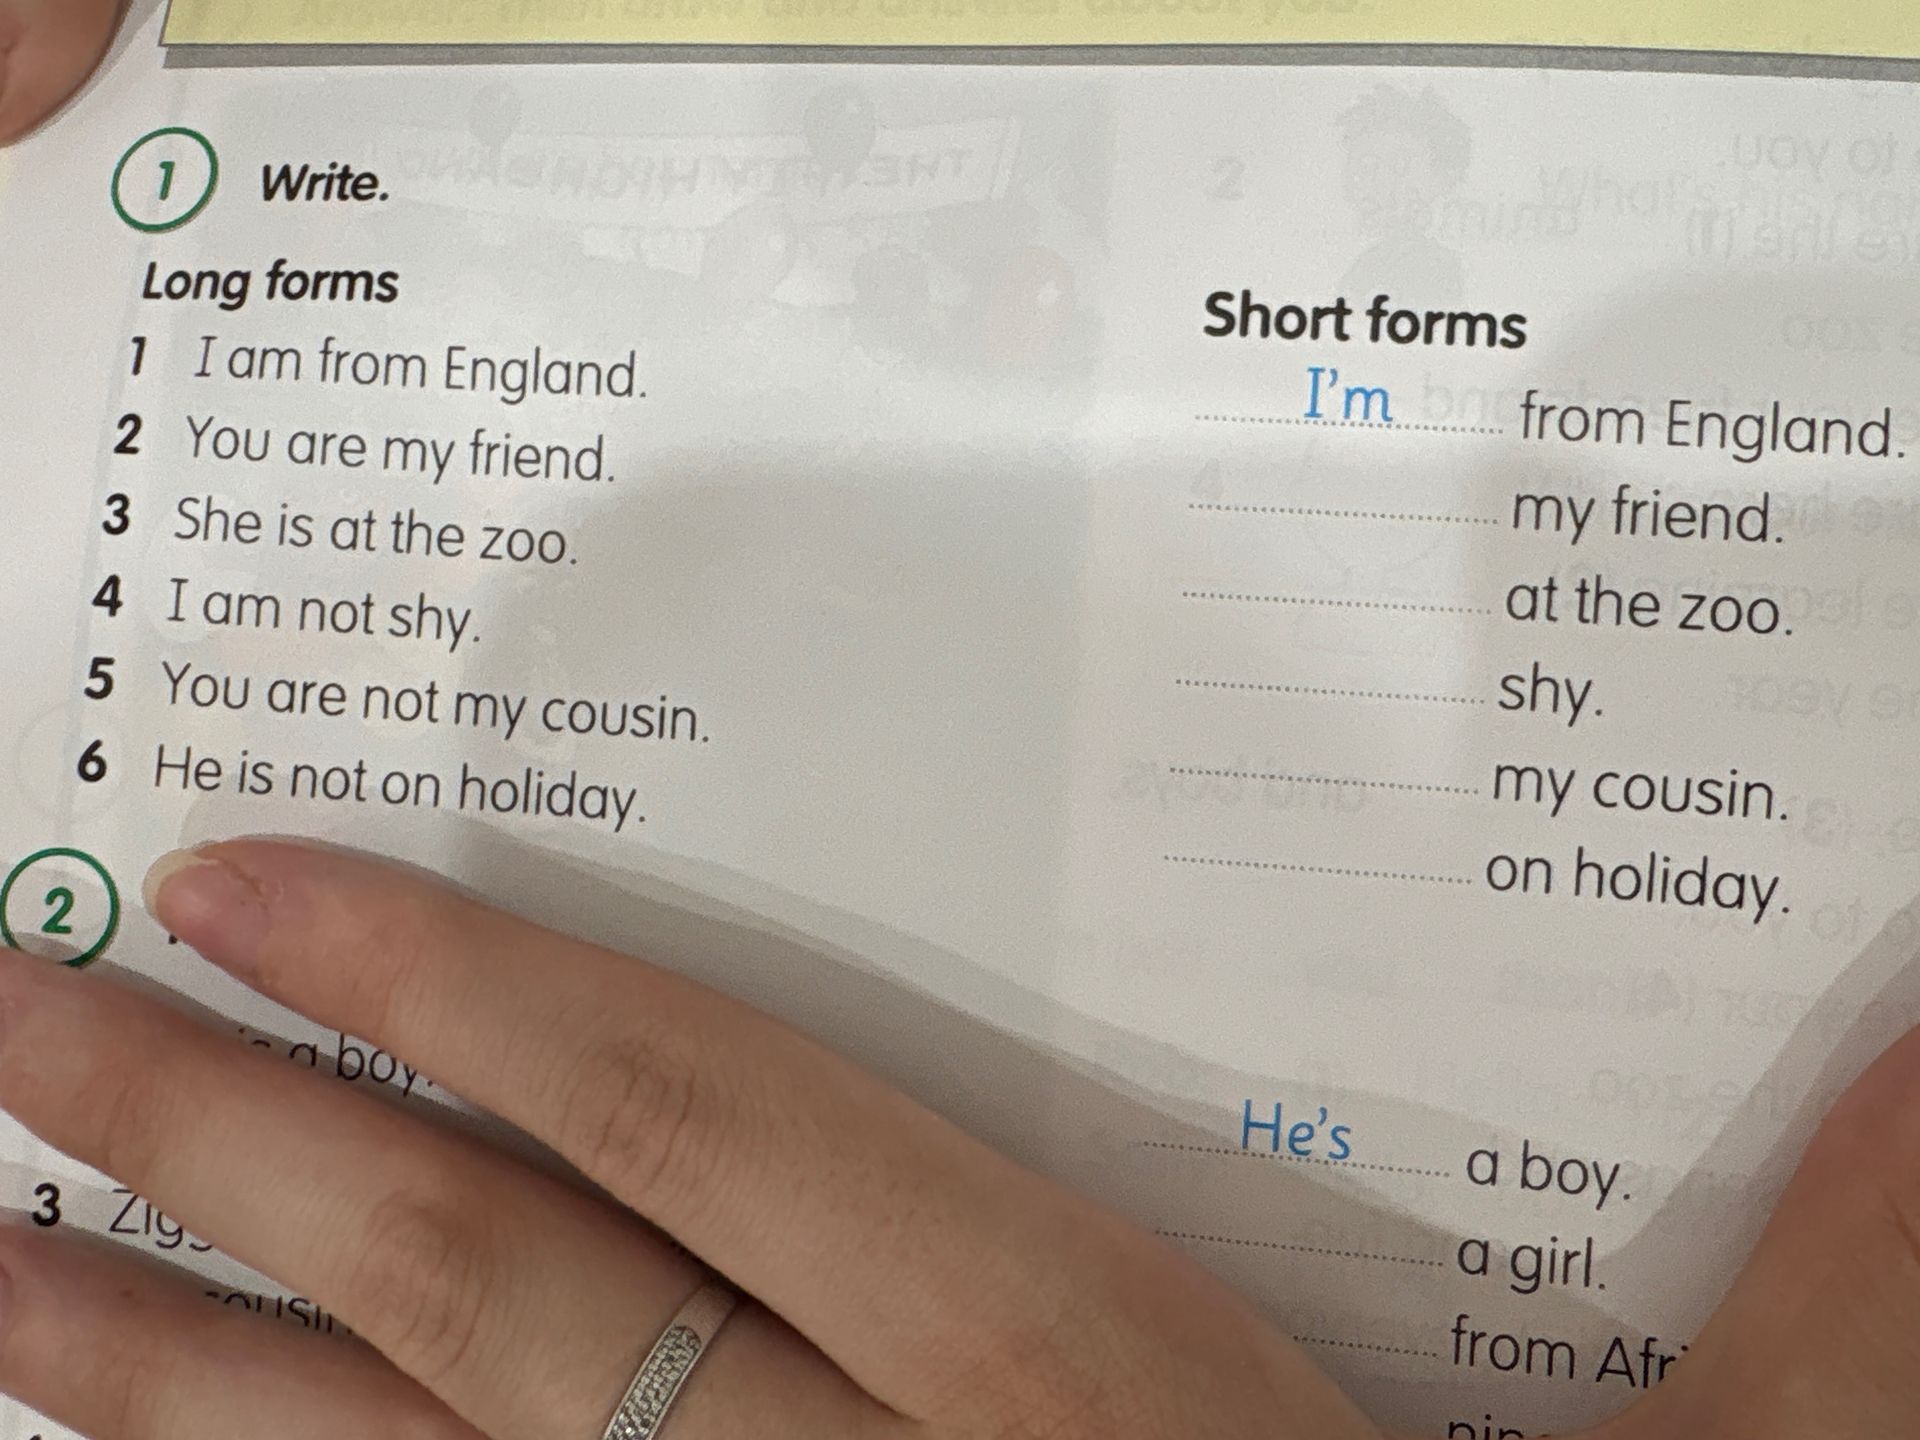 1 Write.
Long forms
1 I am from England.
2 You are my friend.
3 She is at the zoo.
4 I am not shy.
5 You are not my cousin.
6 He is not on holiday.
Short forms
I'm from England.
my friend.
at the zoo.
shy.
my cousin.
on holiday.
2
a boy.
3
He's a boy.
a girl.
from